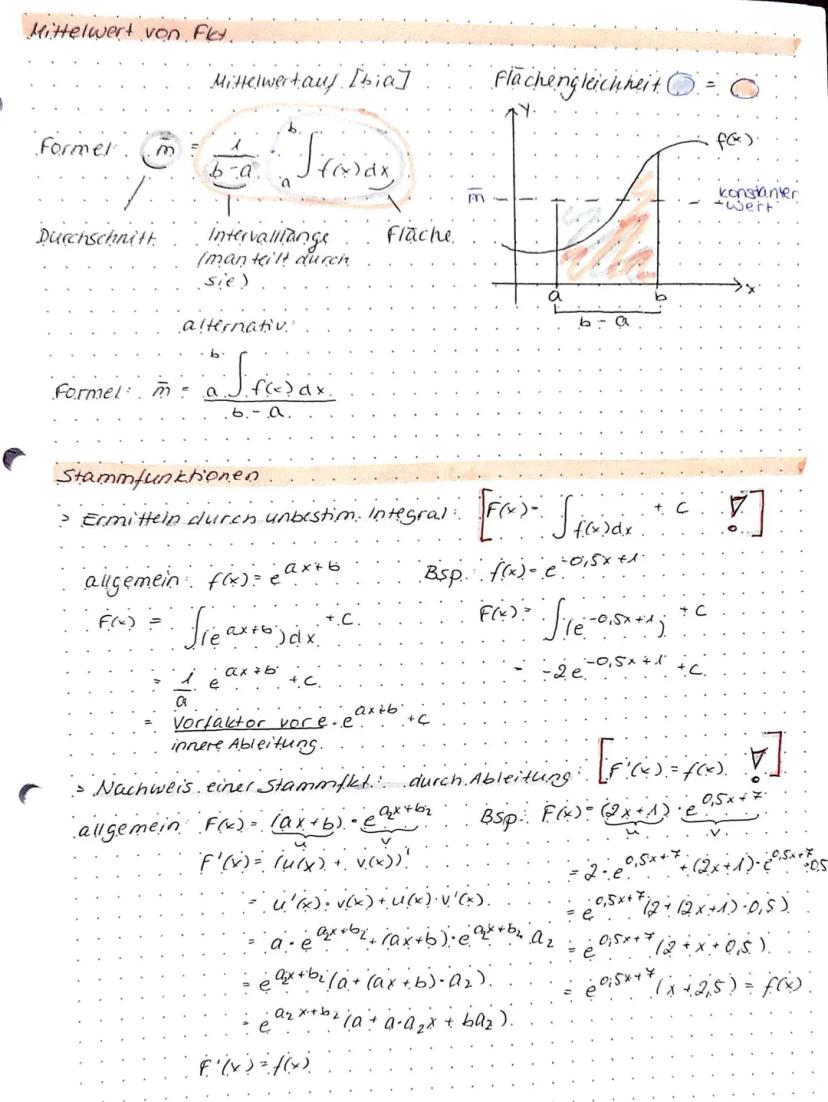 Mittelwert von Fkt.
Mittelwert auf [b;a]
Formel: m̄ = 1/(b-a) · a∫b f(x)dx
Durchschnitt
Intervalllänge
(man teilt durch
sie)
Fläche
Flächengleichheit =
y
f(x)
m̄
konstanter
Wert
a b x
b-a
alternativ:
Formel: m̄ = (a∫b f(x)dx)/(b-a)
Stammfunktionen
> Ermitteln durch unbestim. Integral: [F(x)= ∫f(x)dx + c !]
allgemein: f(x)=e^(ax+b)
F(x) = ∫(e^(ax+b))dx +c
= 1/a e^(ax+b) +c
= Vorfaktor vor e/innere Ableitung · e^(ax+b) +c
Bsp. f(x)=e^(-0,5x+1)
F(x)= ∫(e^(-0,5x+1)) +c
= -2e^(-0,5x+1) +c
> Nachweis einer Stammfkt: durch Ableitung [F'(x)=f(x) !]
allgemein F(x)=(ax+b)·e^(a₂x+b₂)
u v
F'(x)=(u(x)+v(x))'
= u'(x)·v(x)+u(x)·v'(x)
= a·e^(a₂x+b₂)+(ax+b)·e^(a₂x+b₂)·a₂
= e^(a₂x+b₂)(a+(ax+b)·a₂)
= e^(a₂x+b₂)(a+a·a₂x+ba₂)
F'(x)=f(x)
Bsp: F(x)=(2x+1)·e^(0,5x+7)
u v
=2·e^(0,5x+7)+(2x+1)·e^(0,5x+7)·0,5
=e^(0,5x+7)(2+(2x+1)·0,5)
=e^(0,5x+7)(2+x+0,5)
=e^(0,5x+7)(x+2,5)=f(x)